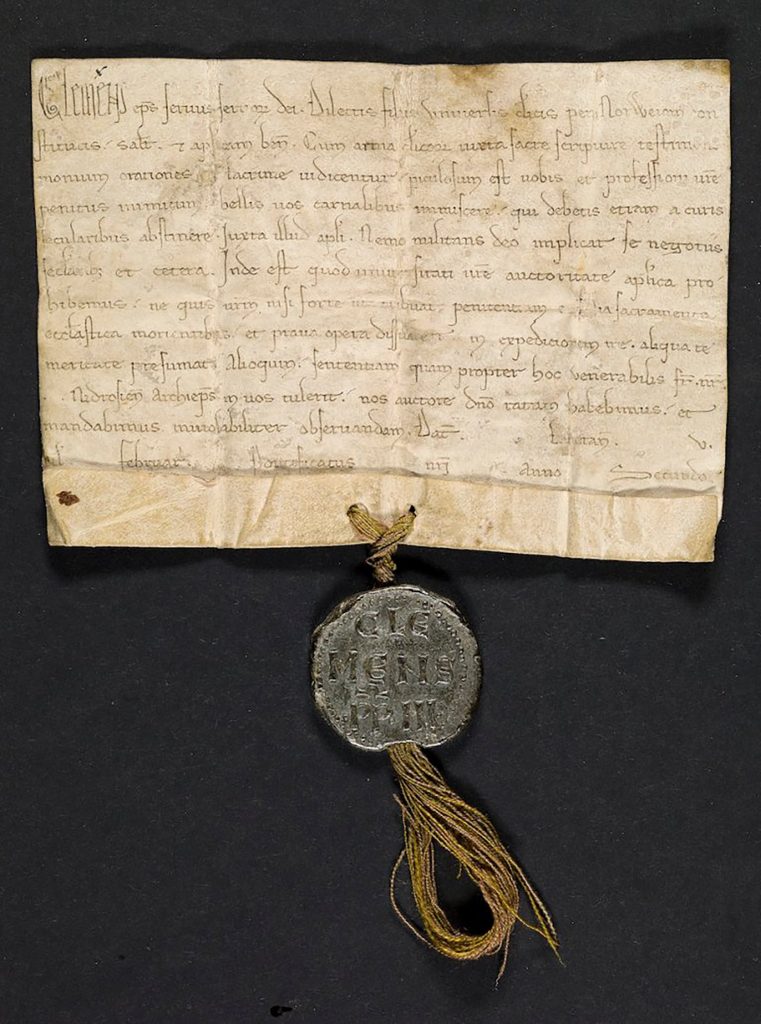 Clemens eps seruus seruor dei. Dilectis filiis vniuersis clicis per Norweiam con
stitutis. salt. & aplicam ben. Cum arma clicor iuxta sacre scripture testimo
monium orationes lacrime iudicentur. piculosum est uobis et professioni ure
penitus inimicum bellis uos carnalibus inmiscere. qui debetis etiam a curis
secularibus abstinere. Iuxta illud apli. Nemo militans deo implicat se negotiis
seclarib; et cetera. Inde est quod uniusitati ure auctoritate aplica pro
hibemus. ne quis urm nisi forte ut tribuat penitentiam & alia sacramenta
ecclastica morientibus. et praua opera in expeditionem ire. aliqua te
meritate presumat. Alioquin. sententiam quam propter hoc venerabilis fr. nr.
Nidrosien Archieps in uos tulerit. nos auctore dno ratam habebimus. et
mandabimus inuiolabiliter obseruandam. Dat. Lateran. V.
kl februar. Pontificatus nri Anno Secundo.
CLE
MENS
PP III